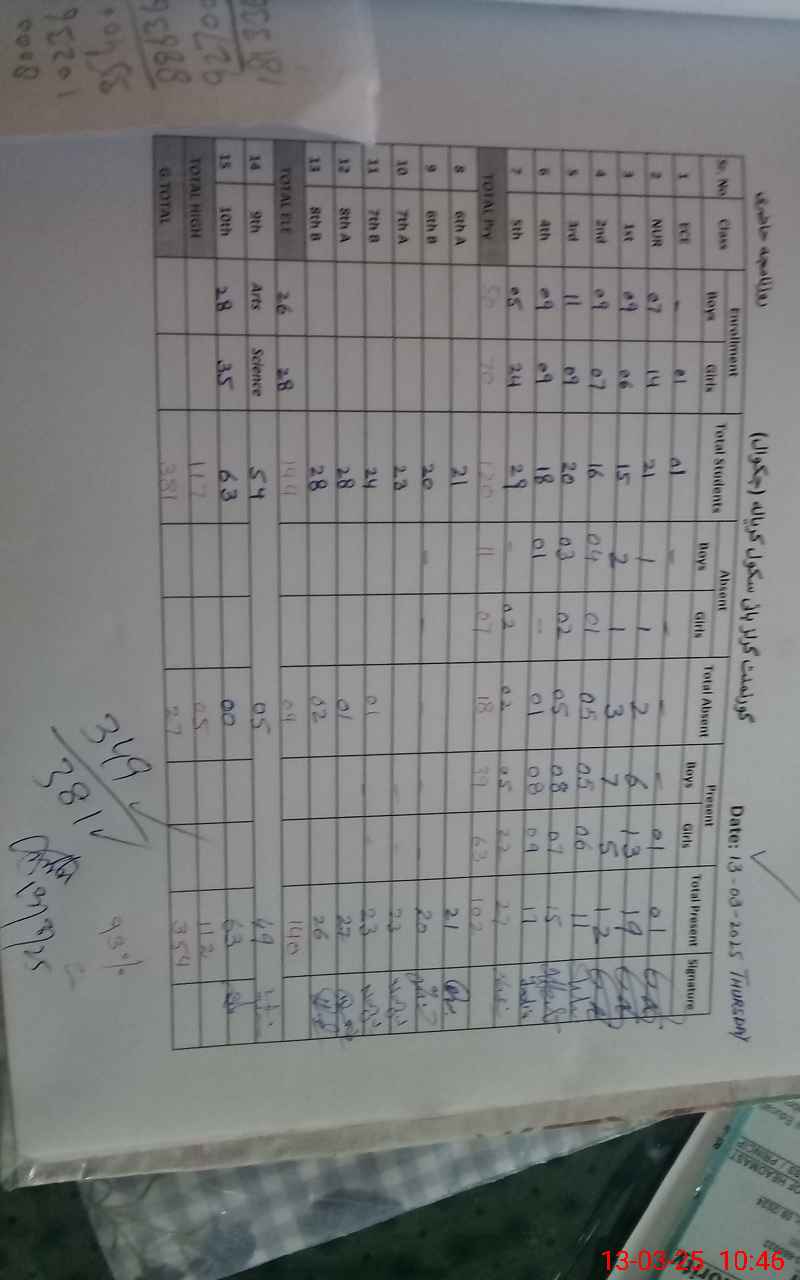 روزنامچہ حاضری
گورنمنٹ گرلز ہائی سکول کریالہ (چکوال)
Date: 13-03-2025 THURSDAY
Sr. No Class Enrollment Total Students Absent Total Absent Present Total Present Signature
Boys Girls Boys Girls Boys Girls
1 ECE - 01 01 - - - - 01 01
2 NUR 07 14 21 1 1 2 6 13 19
3 1st 09 06 15 2 1 3 7 5 12
4 2nd 09 07 16 04 01 05 05 06 11
5 3rd 11 09 20 03 02 05 08 07 15
6 4th 09 09 18 01 - 01 08 09 17
7 5th 05 24 29 - 02 02 05 22 27
TOTAL Pry 50 70 120 11 07 18 39 63 102
8 6th A 21 21
9 6th B 20 - - - 20
10 7th A 23 - 23
11 7th B 24 01 23
12 8th A 28 01 27
13 8th B 28 02 26
TOTAL ELE 26 28 144 04 140
14 9th Arts Science 54 05 49
15 10th 28 35 63 00 63
TOTAL HIGH 117 05 112
G TOTAL 381 27 354
93%
349
381
955181
95988
95201
0008
OF HEADMAST
13-03-25 10:46